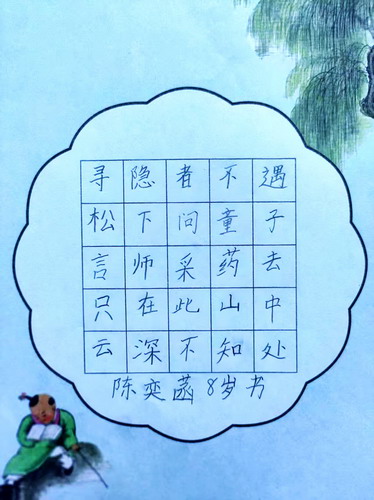 寻隐者不遇
松下问童子
言师采药去
只在此山中
云深不知处
陈奕菡8岁书